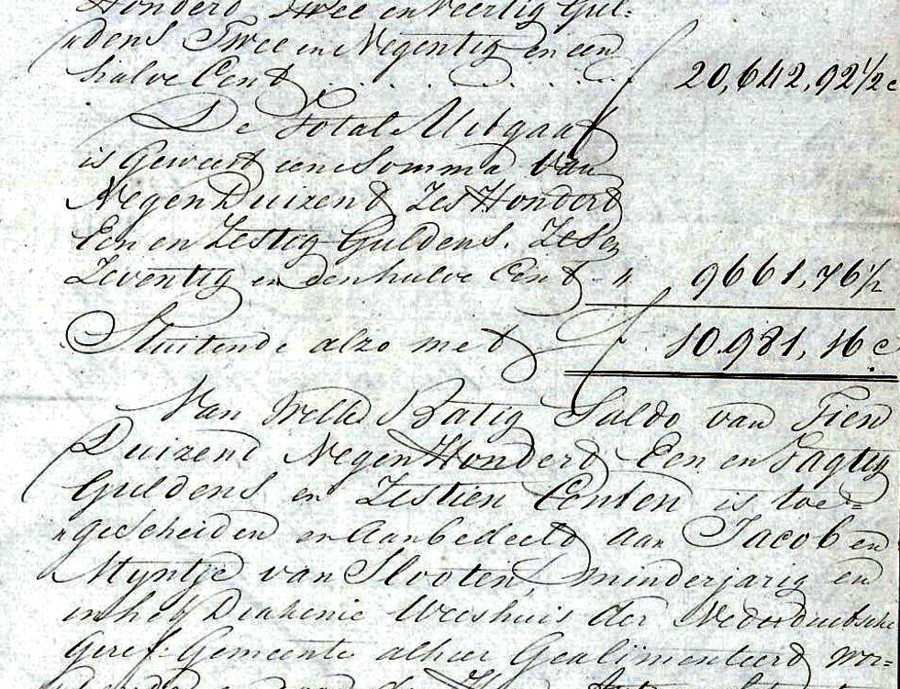 Honderd Twee en Veertig Gul=
dens Twee en Negentig en een
halve Cent . . . . . . . ƒ 20,642,92½ c
De Total Uitgaaf
is Geweest eene Somma van
Negen Duizend Zes Hondert
Een en Zestig Guldens. Zes en
Zeventig en Eenhalve Cent - " 9661,76½
Sluitende alzo met ƒ 10.981,16 c
Van Welk Batig Saldo van Tien
Duizend Negen Honderd Een en Tagtig
Guldens en Zestien Centen is toe=
gescheiden en Aanbedeeld aan Jacob en
Myntje van Slooten, minderjarig en
in het Diakenie Weeshuis der Nederduitsche
Geref. Gemeente alhier Gealimenteerd wor=